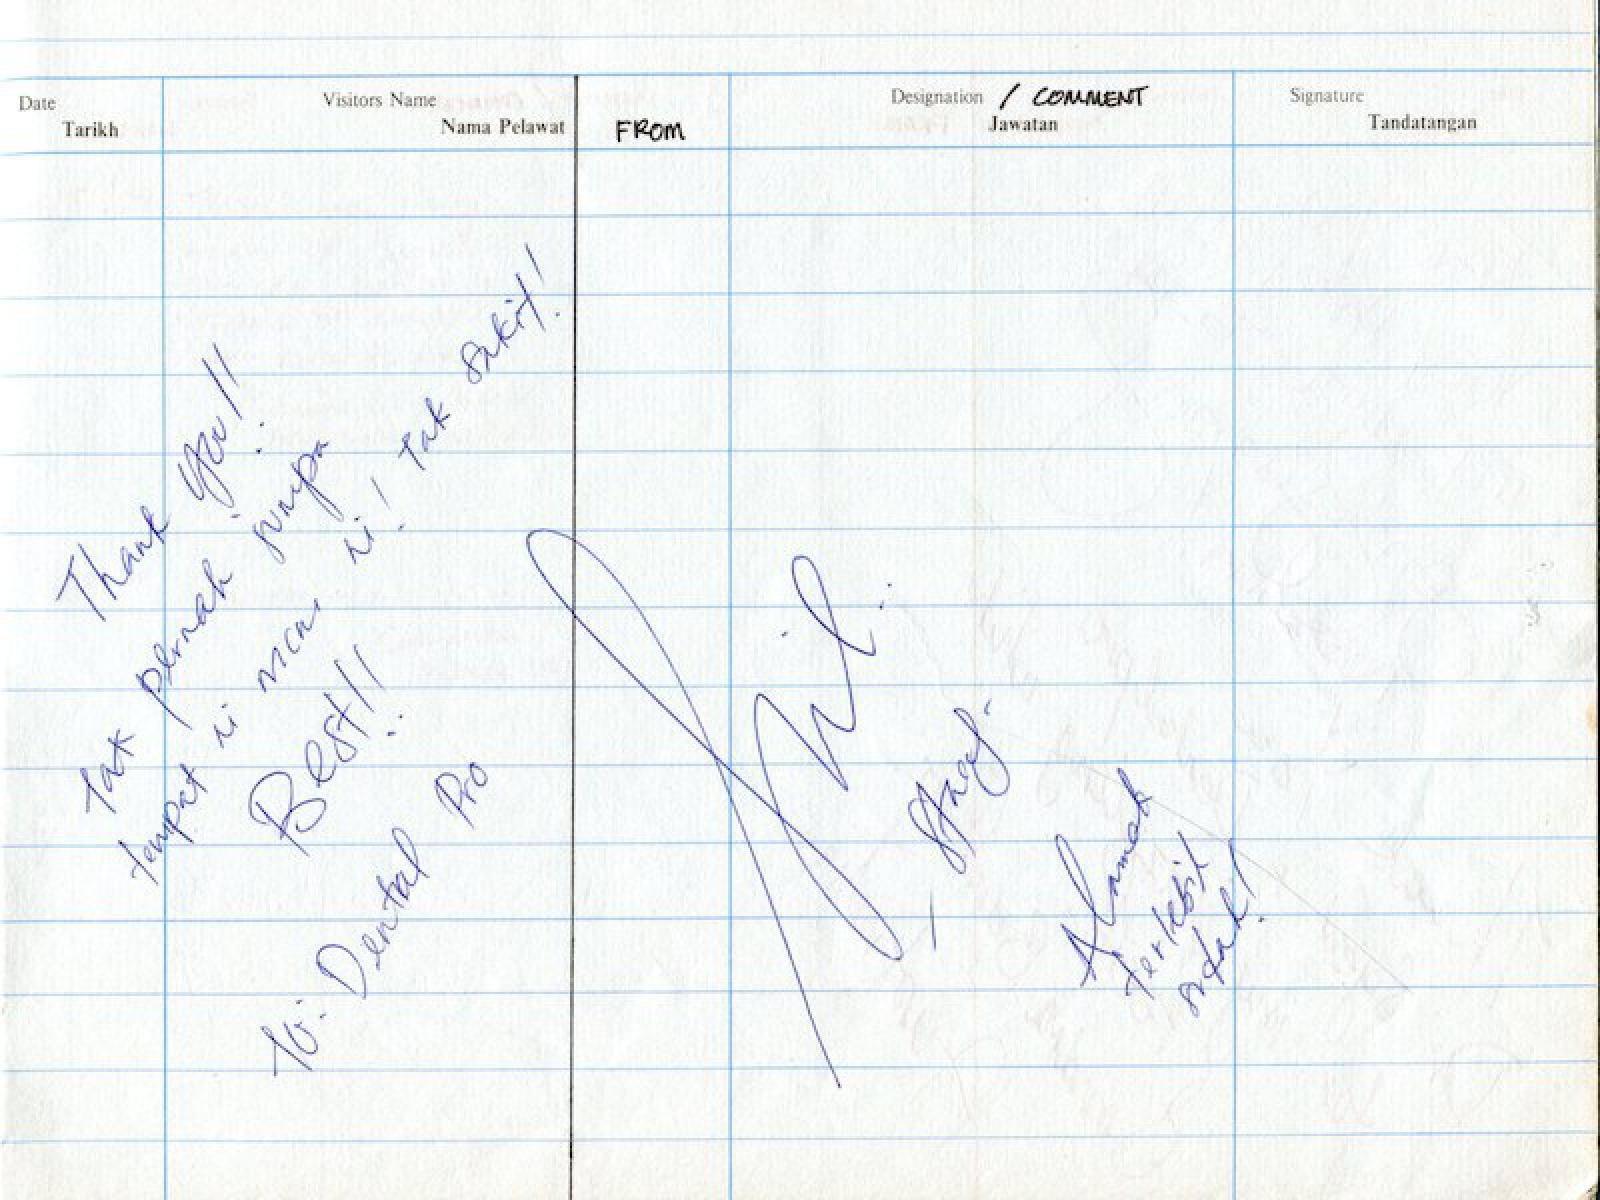 Date
Tarikh
Visitors Name
Nama Pelawat
FROM
Designation / COMMENT
Jawatan
Signature
Tandatangan
Thank you!!
tak pernah jumpa
tempat ni mcm ni! tak sakit!
Best!!
To: Dental Pro
Alamak
Terlebih
sudah!